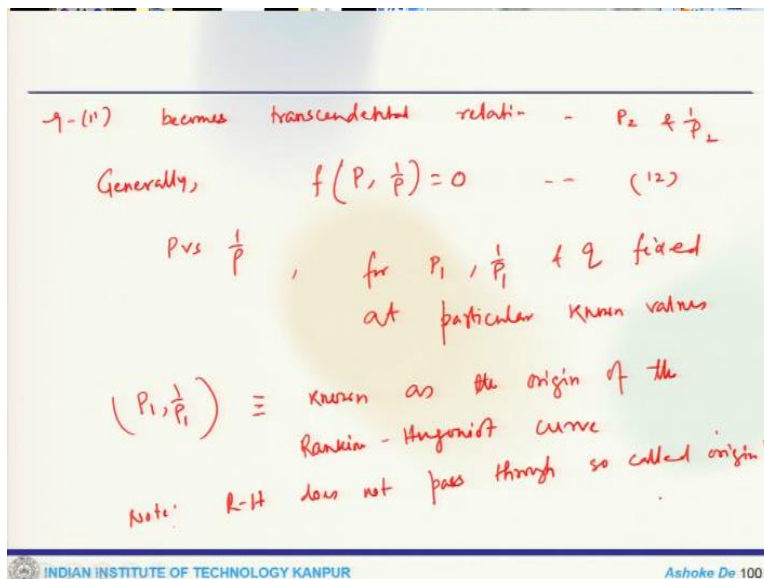 eq-(11) becomes transcendental relation - P2 & 1/ρ2
Generally, f(P, 1/ρ) = 0 -- (12)
P vs 1/ρ, for P1, 1/ρ1 & q fixed
at particular known values
(P1, 1/ρ1) ≡ known as the origin of the
Rankin-Hugoniot curve
Note: R-H does not pass through so called origin
INDIAN INSTITUTE OF TECHNOLOGY KANPUR
Ashoke De 100